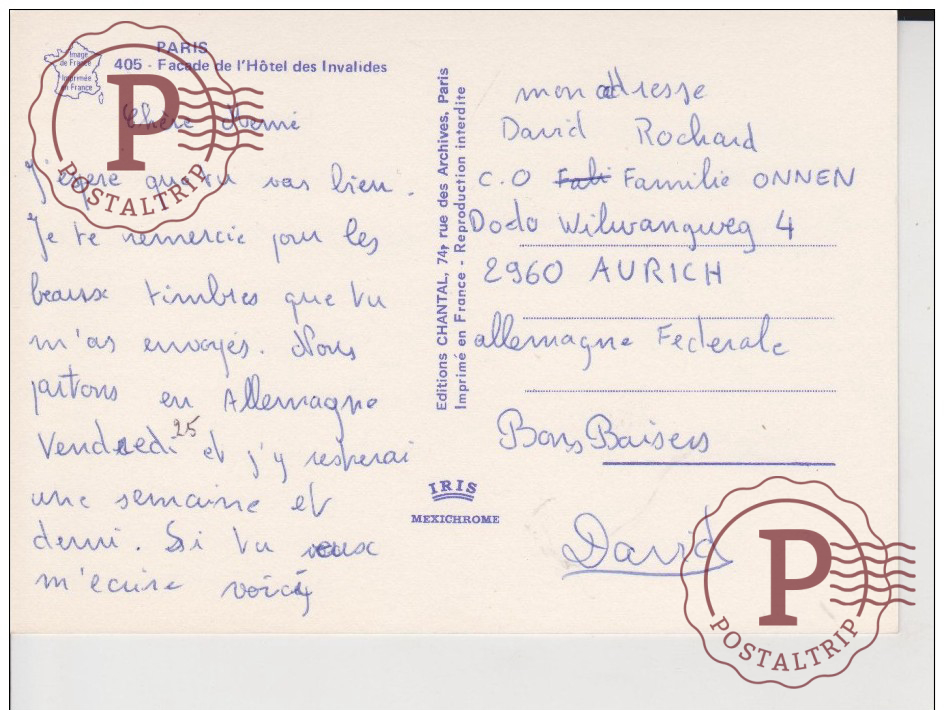 PARIS
405 - Façade de l'Hôtel des Invalides
Image
de France
Imprimée
en France
Chère Mémé
J'espère que tu vas bien.
Je te remercie pour les
beaux timbres que tu
m'as envoyés. Nous
partons en Allemagne
Vendredi 25 et j'y resterai
une semaine et
demi. Si tu veux
m'écrire voici
Editions CHANTAL, 74, rue des Archives, Paris
Imprimé en France - Reproduction interdite
IRIS
MEXICHROME
mon adresse
David Rochard
C.O Familie ONNEN
Dodo Wilwangweg 4
2960 AURICH
allemagne Federale
Bons Baisers
David
P
POSTALTRIP
P
POSTALTRIP